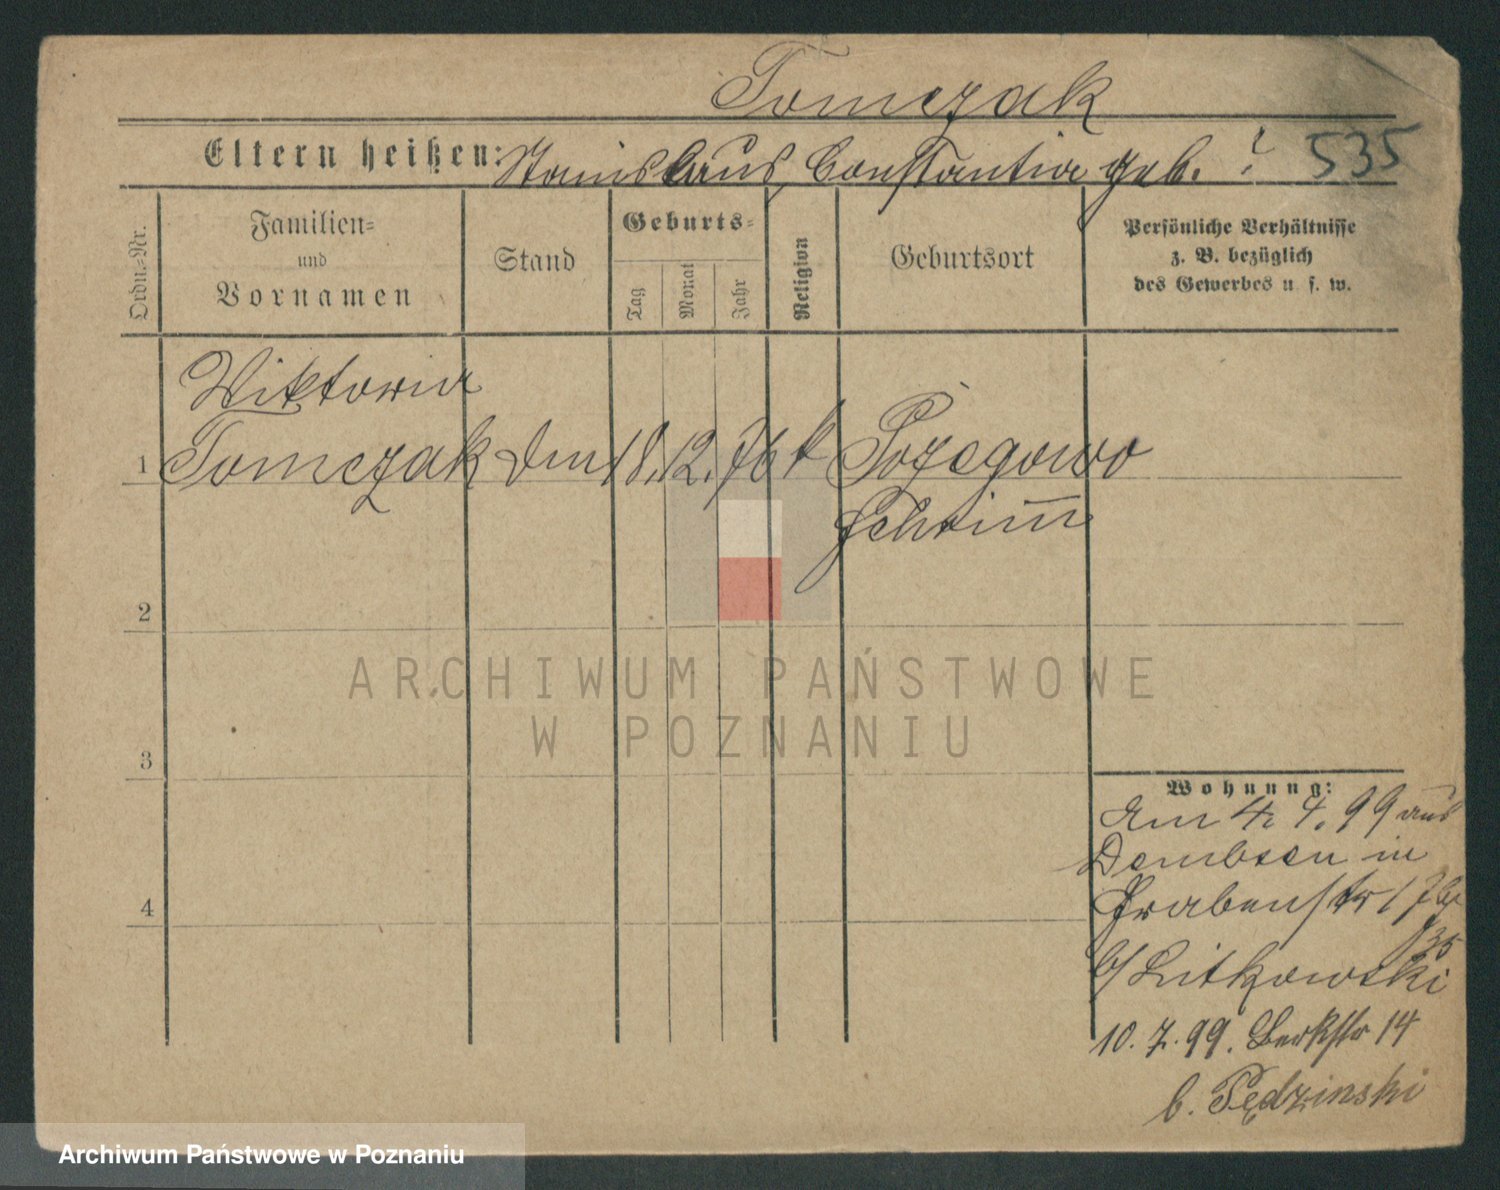 Tomczak
Eltern heißen: Stanislaus, Constantia geb. ?
535
Ordn.-Nr.
Familien-
und
Vornamen
Stand
Geburts-
Tag
Monat
Jahr
Religion
Geburtsort
Persönliche Verhältnisse
z. B. bezüglich
des Gewerbes u. s. w.
Wiktoria
1 Tomczak 18. 12. 76 k Pozegowo
Schrimm
2
ARCHIWUM PAŃSTWOWE
W POZNANIU
3
Wohnung:
Am 4. 4. 99 aus
Dembsen in
Grabenstr
4
b/ Litkowski
10. 7. 99. 14
b. Pędzinski
Archiwum Państwowe w Poznaniu